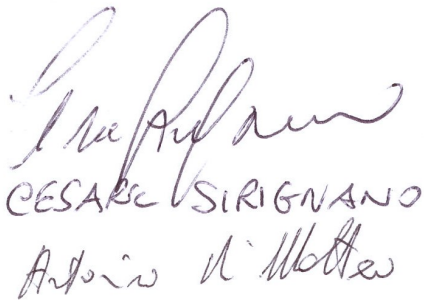 CESARE SIRIGNANO
Antonio Di Matteo